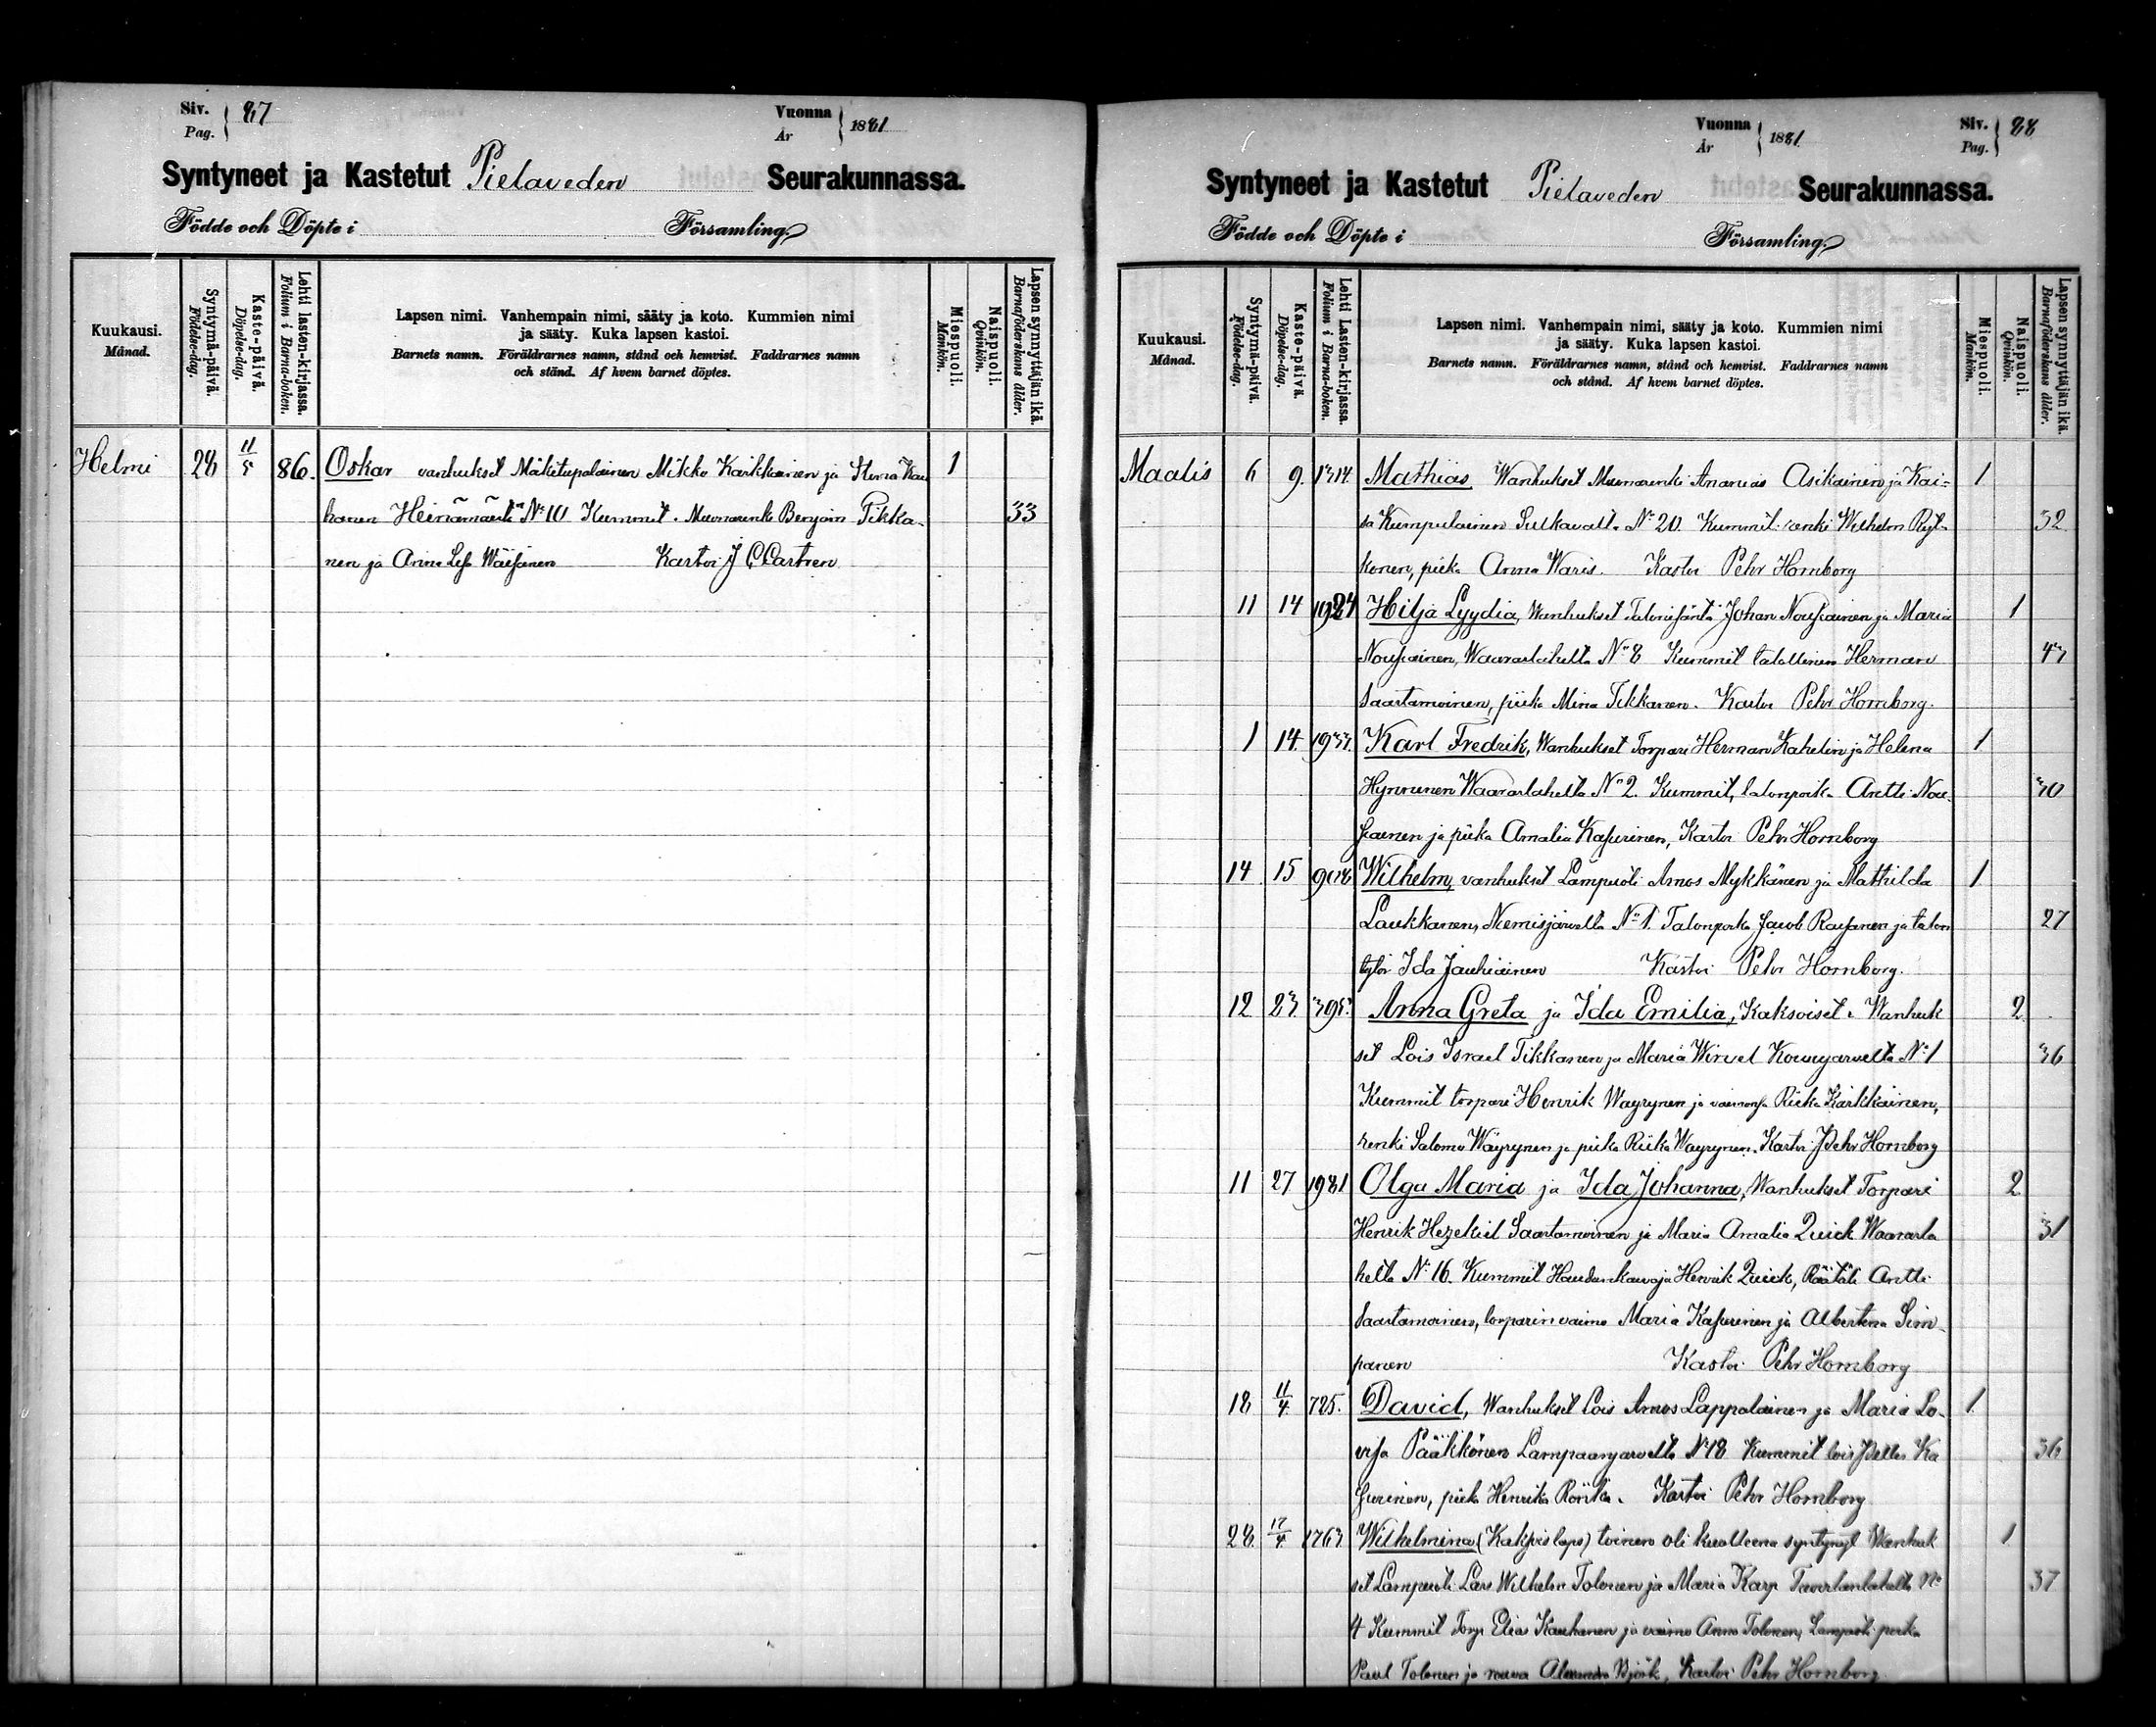 Siv. 87 Vuonna 1881
Pag. År
Syntyneet ja Kastetut Pielaveden Seurakunnassa.
Födde och Döpte i Församling.
Kuukausi.
Månad.
Syntymä-päivä.
Födelse-dag.
Kaste-päivä.
Döpelse-dag.
Lehti lasten-kirjassa.
Folium i Barna-boken.
Lapsen nimi. Vanhempain nimi, sääty ja koto. Kummien nimi
ja sääty. Kuka lapsen kastoi.
Barnets namn. Föräldrarnes namn, stånd och hemvist. Faddrarnes namn
och stånd. Af hvem barnet döptes.
Miespuoli.
Mankön.
Naispuoli.
Qvinkön.
Lapsen synnyttäjän ikä.
Barnaföderskans ålder.
Helmi 28 11/5 86. Oskar vanhukset Mäkitupalainen Mikko Karkkainen ja Stina Kau 1
hanen Heinämäeltä No 10 Kummit. Muonarenki Benjam Tikka- 33
nen ja Anna Lisa Wäisänen Kastoi J C Castren
Vuonna 1881 Siv. 88
År Pag.
Syntyneet ja Kastetut Pielaveden Seurakunnassa.
Födde och Döpte i Församling.
Kuukausi.
Månad.
Syntymä-päivä.
Födelse-dag.
Kaste-päivä.
Döpelse-dag.
Lehti Lasten-kirjassa.
Folium i Barna-boken.
Lapsen nimi. Vanhempain nimi, sääty ja koto. Kummien nimi
ja sääty. Kuka lapsen kastoi.
Barnets namn. Föräldrarnes namn, stånd och hemvist. Faddrarnes namn
och stånd. Af hvem barnet döptes.
Miespuoli.
Mankön.
Naispuoli.
Qvinkön.
Lapsen synnyttäjän ikä.
Barnaföderskans ålder.
Maalis 6 9. 1314. Mathias Wanhukset Muonarenki Ananias Asikainen ja Kai- 1
sa Kumpulainen Sulkavalta No 20. Kummit renki Wilhelm Ryt- 32
konen, piika Anna Waris. Kastoi Pehr Hornborg
11 14 Hilja Lyydia, Wanhukset Talonisäntä Johan Nousiainen ja Maria 1
Nousiainen, Waaraslahelta No 8 Kummit talollinen Herman 43
Saastamoinen, piika Mina Tikkanen. Kastoi Pehr Hornborg.
1 14. 1933. Karl Fredrik, Wanhukset Torpari Herman Kahelin ja Helena 1
Hynninen Waaraslahelta No 2. Kummit, talonpoika Antti Nou- 30
siainen ja piika Amalia Kasurinen, Kastoi Pehr Hornborg
14 15 908 Wilhelm, vanhukset Lampuoti Amos Mykkänen ja Mathilda 1
Laukkanen, Niemisjärveltä No 1. Talonpoika Jacob Rausanen ja talon 27
tytör Ida Jauhiainen Kastoi Pehr Hornborg.
12 23 395. Anna Greta ja Ida Emilia, Kaksoiset. Wanhuk 2.
set Lois Israel Tikkanen ja Maria Wirvel Kowujarveltä No 1 36
Kummit torpari Henrik Wayrynen ja vaimonsa Riika Kärkkäinen,
renki Salomo Wäyrynen ja piika Riika Wayrynen. Kastoi Pehr Hornborg
11 27 1981 Olga Maria ja Ida Johanna, Wanhukset Torpari 2
Henrik Hezekiel Saastamoinen ja Maria Amalia Quick Waarasla 31
helta No 16. Kummit Haudankawaja Henrik Quick, Räätäli Antti
Saastamoinen, torparin vaimo Maria Kasurinen ja Albertina Sim-
panen Kastoi Pehr Hornborg
18 11/4 725. David, Wanhukset Lois Amos Lappalainen ja Maria Lo- 1.
visa Pääkkönen Lampaanjarveltä No 18 Kummit lois Petter Ka 36
surinen, piika Henrika Rönkä. Kastoi Pehr Hornborg
28 17/4 1763 Wilhelmina (Kaksoislaps) toinen oli kuolleena syntynyt Wanhuk 1
set Lampuoti Lars Wilhelm Tolonen ja Maria Karp No 37
4 Kummit Torp Elias Kauhanen ja vaimo Anna Tolonen, Lampuoti poika
Paul Tolonen ja rouva Björk, Kastoi Pehr Hornborg